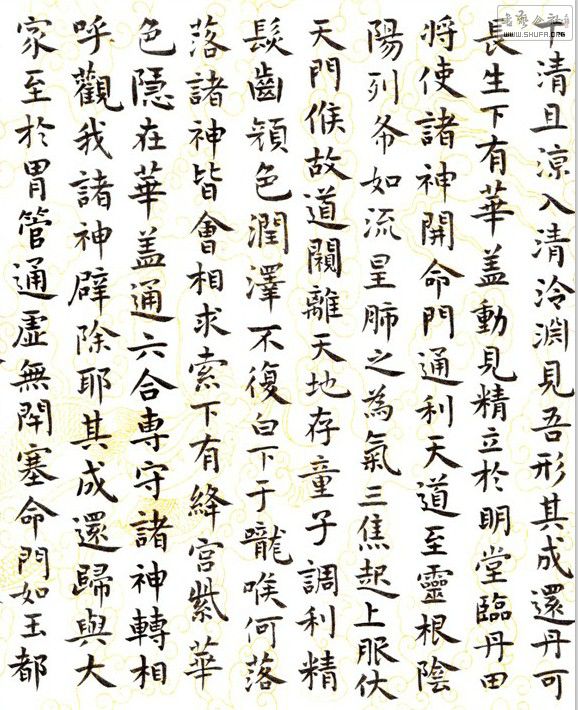 下清且涼入清泠淵見吾形其成還丹可
長生下有華盖動見精立於明堂臨丹田
將使諸神開命門通利天道至靈根陰
陽列布如流星肺之為氣三焦起上服伏
天門候故道闚離天地存童子調利精
髮齒顔色潤澤不復白下于嚨喉何落
落諸神皆會相求索下有絳宮紫華
色隱在華盖通六合専守諸神轉相
呼觀我諸神辟除耶其成還歸與大
家至於胃管通虛無閇塞命門如玉都
書法公社
www.SHUFA.ORG